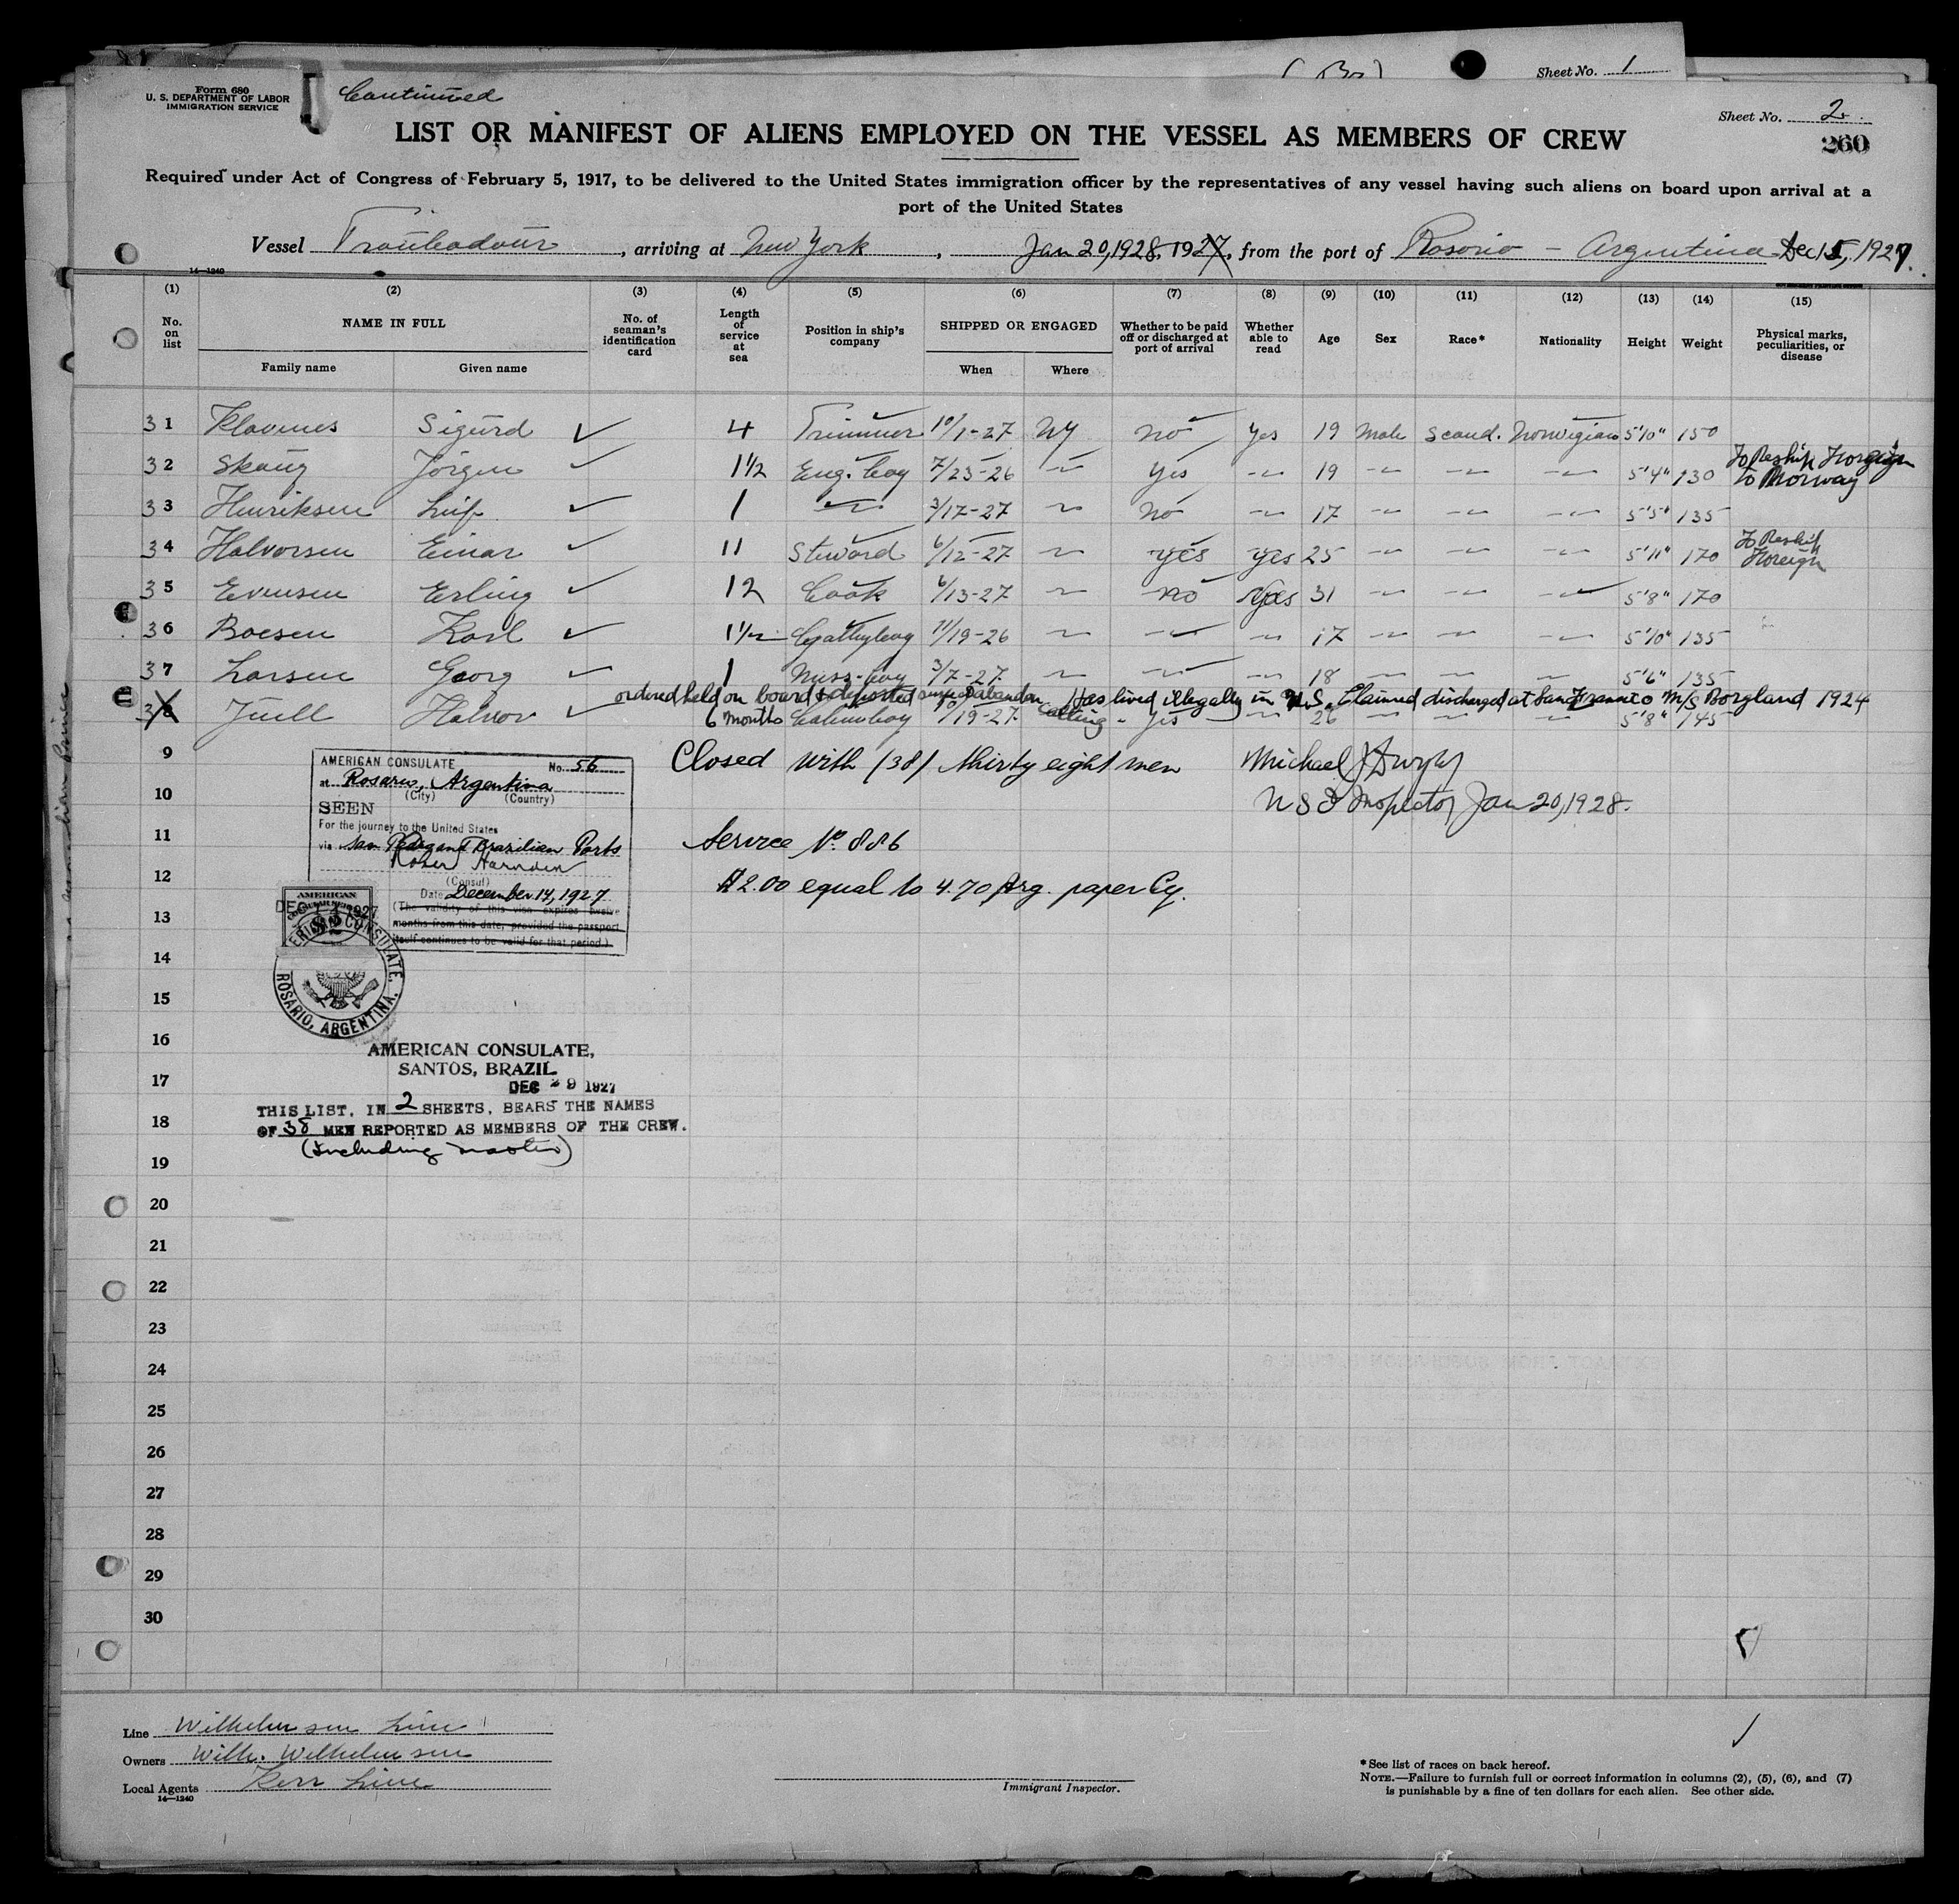 Sheet No. 1
Form 680
U. S. DEPARTMENT OF LABOR
IMMIGRATION SERVICE
Continued
Sheet No. 2
260
LIST OR MANIFEST OF ALIENS EMPLOYED ON THE VESSEL AS MEMBERS OF CREW
Required under Act of Congress of February 5, 1917, to be delivered to the United States immigration officer by the representatives of any vessel having such aliens on board upon arrival at a
port of the United States
Vessel Troubadour, arriving at New York, Jan 20, 1928, 1927, from the port of Rosario – Argentina Dec 15, 1927.
14—1240
(1) (2) (3) (4) (5) (6) (7) (8) (9) (10) (11) (12) (13) (14) (15)
No. on list
NAME IN FULL
Family name Given name
No. of seaman's identification card
Length of service at sea
Position in ship's company
SHIPPED OR ENGAGED
When Where
Whether to be paid off or discharged at port of arrival
Whether able to read
Age Sex Race* Nationality Height Weight
Physical marks, peculiarities, or disease
31 Klavenes Sigurd ✓ 4 Trimmer 10/1-27 NY no yes 19 Male Scand. Norwegian 5'10" 150
32 Skaug Jörgen ✓ 1½ Eng. boy 7/23-26 〃 yes 〃 19 〃 〃 〃 5'4" 130 To Reship Foreign to Norway
33 Henriksen Leif ✓ 1 〃 3/17-27 〃 No 〃 17 〃 〃 〃 5'5" 135
34 Halvorsen Einar ✓ 11 Steward 6/12-27 〃 yes yes 25 〃 〃 〃 5'11" 170 To Reship Foreign
35 Evensen Erling ✓ 12 Cook 6/13-27 〃 no Yes 31 〃 〃 〃 5'8" 170
36 Boesen Karl ✓ 1½ 11/19-26 〃 〃 〃 17 〃 〃 〃 5'10" 135
37 Larsen Georg ✓ 1 Mess-boy 3/7-27 〃 〃 〃 18 〃 〃 〃 5'6" 135
ordered held on board & deported Has lived illegally in U.S. Claimed discharged at San Francisco M/S Borgland 1924
38 Juell Halvor ✓ 6 months Cabinboy 10/19-27 yes 〃 26 〃 〃 〃 5'8" 145
9
Closed with (38) thirty eight men Michael J Dwyer
10
U S I Inspector Jan 20, 1928.
AMERICAN CONSULATE No. 56
at Rosario, Argentina
(City) (Country)
SEEN
For the journey to the United States
via San and Brazilian Ports
Harnden
(Consul)
Date December 14, 1927
(The validity of this visa expires twelve
months from this date, provided the passport
itself continues to be valid for that period.)
11
Service No. 886
12
$2.00 equal to 4.70 Arg. paper Cy.
13
AMERICAN
DEC 14 1927
AMERICAN CONSULATE, ROSARIO, ARGENTINA.
14
15
16
AMERICAN CONSULATE,
SANTOS, BRAZIL
17
DEC 29 1927
THIS LIST, IN 2 SHEETS, BEARS THE NAMES
18
OF 38 MEN REPORTED AS MEMBERS OF THE CREW.
(Including master)
19
20
21
22
23
24
25
26
27
28
29
30
Line Wilhelmsen Line
Owners Wilh. Wilhelmsen
Local Agents Kerr Line
14—1240
Immigrant Inspector.
* See list of races on back hereof.
NOTE.—Failure to furnish full or correct information in columns (2), (5), (6), and (7)
is punishable by a fine of ten dollars for each alien. See other side.